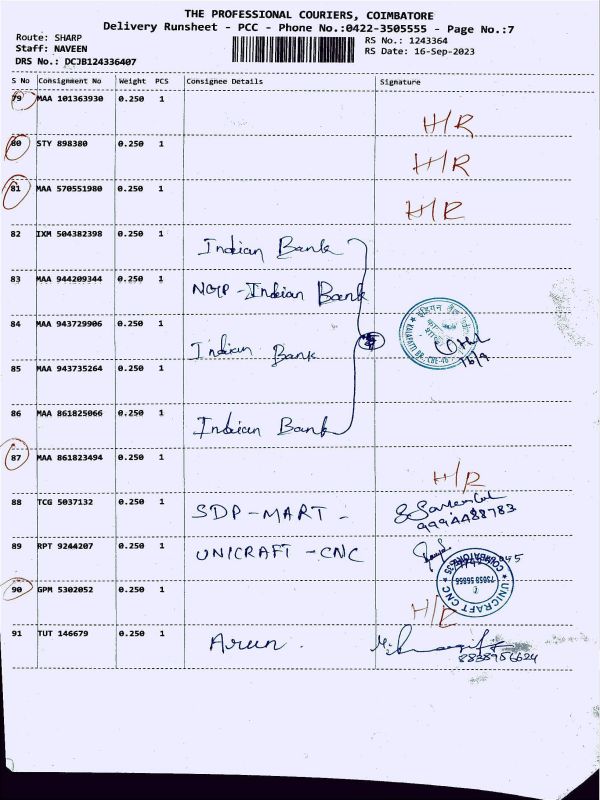 THE PROFESSIONAL COURIERS, COIMBATORE
Delivery Runsheet - PCC - Phone No.:0422-3505555 - Page No.:7
Route: SHARP
RS No.: 1243364
Staff: NAVEEN
RS Date: 16-Sep-2023
DRS No.: DCJB124336407
S No Consignment No Weight PCS Consignee Details Signature
79 MAA 101363930 0.250 1 H/R
80 STY 898380 0.250 1 H/R
81 MAA 570551980 0.250 1 H/R
82 IXM 504382398 0.250 1 Indian Bank
83 MAA 944209344 0.250 1 Indian Bank
84 MAA 943729906 0.250 1 Indian Bank
16/9
85 MAA 943735264 0.250 1
86 MAA 861825066 0.250 1 Indian Bank
87 MAA 861823494 0.250 1 H/R
88 TCG 5037132 0.250 1 SDP-MART -
89 RPT 9244207 0.250 1 UNICRAFT - CNC
UNICRAFT CNC
90 GPM 5302052 0.250 1 H/R
91 TUT 146679 0.250 1 Arun
8838956624